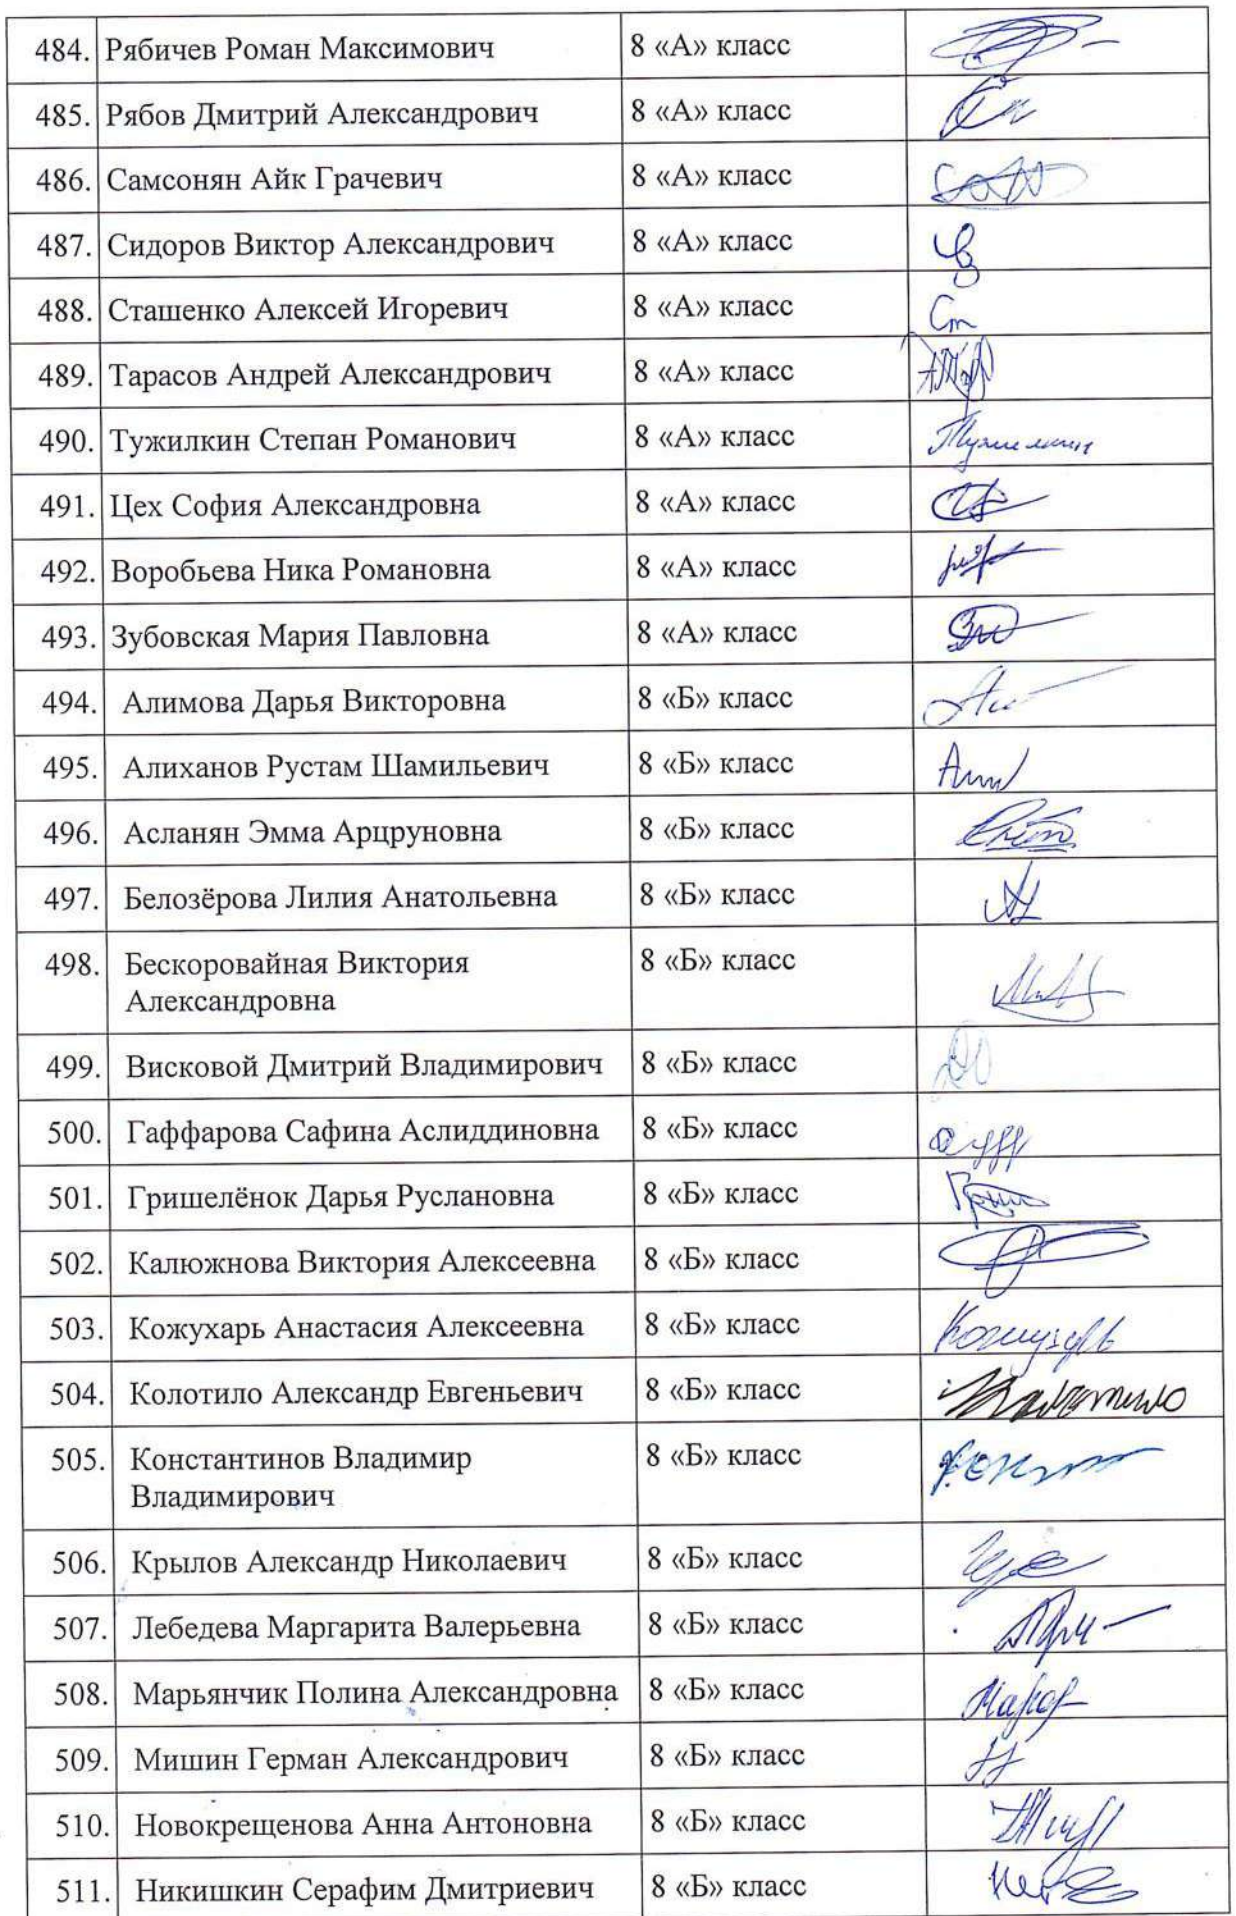 484. Рябичев Роман Максимович 8 «А» класс
485. Рябов Дмитрий Александрович 8 «А» класс
486. Самсонян Айк Грачевич 8 «А» класс
487. Сидоров Виктор Александрович 8 «А» класс
488. Сташенко Алексей Игоревич 8 «А» класс Ст
489. Тарасов Андрей Александрович 8 «А» класс
490. Тужилкин Степан Романович 8 «А» класс
491. Цех София Александровна 8 «А» класс
492. Воробьева Ника Романовна 8 «А» класс
493. Зубовская Мария Павловна 8 «А» класс
494. Алимова Дарья Викторовна 8 «Б» класс
495. Алиханов Рустам Шамильевич 8 «Б» класс
496. Асланян Эмма Арцруновна 8 «Б» класс
497. Белозёрова Лилия Анатольевна 8 «Б» класс
498. Бескоровайная Виктория 8 «Б» класс
Александровна
499. Висковой Дмитрий Владимирович 8 «Б» класс
500. Гаффарова Сафина Аслиддиновна 8 «Б» класс
501. Гришелёнок Дарья Руслановна 8 «Б» класс
502. Калюжнова Виктория Алексеевна 8 «Б» класс
503. Кожухарь Анастасия Алексеевна 8 «Б» класс
504. Колотило Александр Евгеньевич 8 «Б» класс
505. Константинов Владимир 8 «Б» класс
Владимирович
506. Крылов Александр Николаевич 8 «Б» класс
507. Лебедева Маргарита Валерьевна 8 «Б» класс
508. Марьянчик Полина Александровна 8 «Б» класс
509. Мишин Герман Александрович 8 «Б» класс
510. Новокрещенова Анна Антоновна 8 «Б» класс
511. Никишкин Серафим Дмитриевич 8 «Б» класс